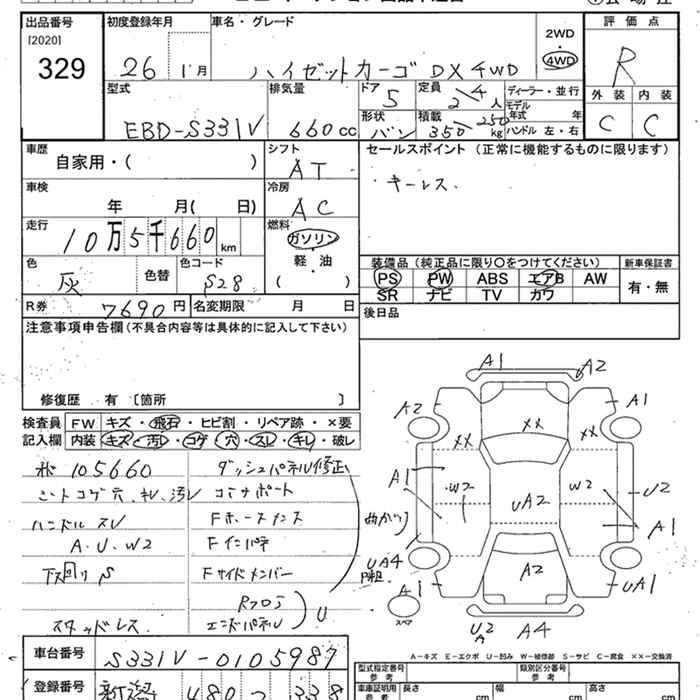 出品番号
[2020]
329
初度登録年月
26 1月
車名・グレード
ハイゼットカーゴ DX 4WD
2WD
・
4WD
評価点
R
外装 内装
C C
型式
EBD-S331V
排気量
660cc
ドア
5
定員
2/4人
ディーラー・並行
モデル年式 年
形状
バン
積載
350 250kg
ハンドル 左・右
車歴
自家用・( )
シフト
AT
セールスポイント (正常に機能するものに限ります)
キーレス.
車検
年 月( 日)
冷房
AC
走行
10万5千660km
燃料
ガソリン
軽・油
( )
色
灰
色替
色コード
S28
装備品 (純正品に限り○をつけてください)
新車保証書
PS PW ABS エアB AW
SR ナビ TV カワ
有・無
R券
7690円
名変期限 月 日
後日品
注意事項申告欄 (不具合内容等は具体的に記入して下さい)
修復歴 有 〔箇所 〕
検査員記入欄
FW キズ・飛石・ヒビ割・リペア跡・×要
内装 キズ・汚レ・コゲ・穴・スレ・キレ・破レ
105660
ダッシュパネル修正
シートコゲ穴、キレ、汚レ
コアサポート
ハンドルスレ
A.U.W2
下回りS
Fサイドメンバー
Rフロア
エンドパネル
U
スタッドレス.
A1 A2
A2 A1
XX
XX XX
A1 W2 UA2 W2 U2
曲がり
A1
UA4
A1 A2 UA1
スペア
U2
A2
A4
A-キズ E-エクボ U-凹み W-補修跡 S-サビ C-腐食 XX-交換済
車台番号
S331V-0105987
型式指定番号
参考
類別区分番号
参考
登録番号
480
338
車庫証明用
参考
長さ cm
幅 cm
高さ cm